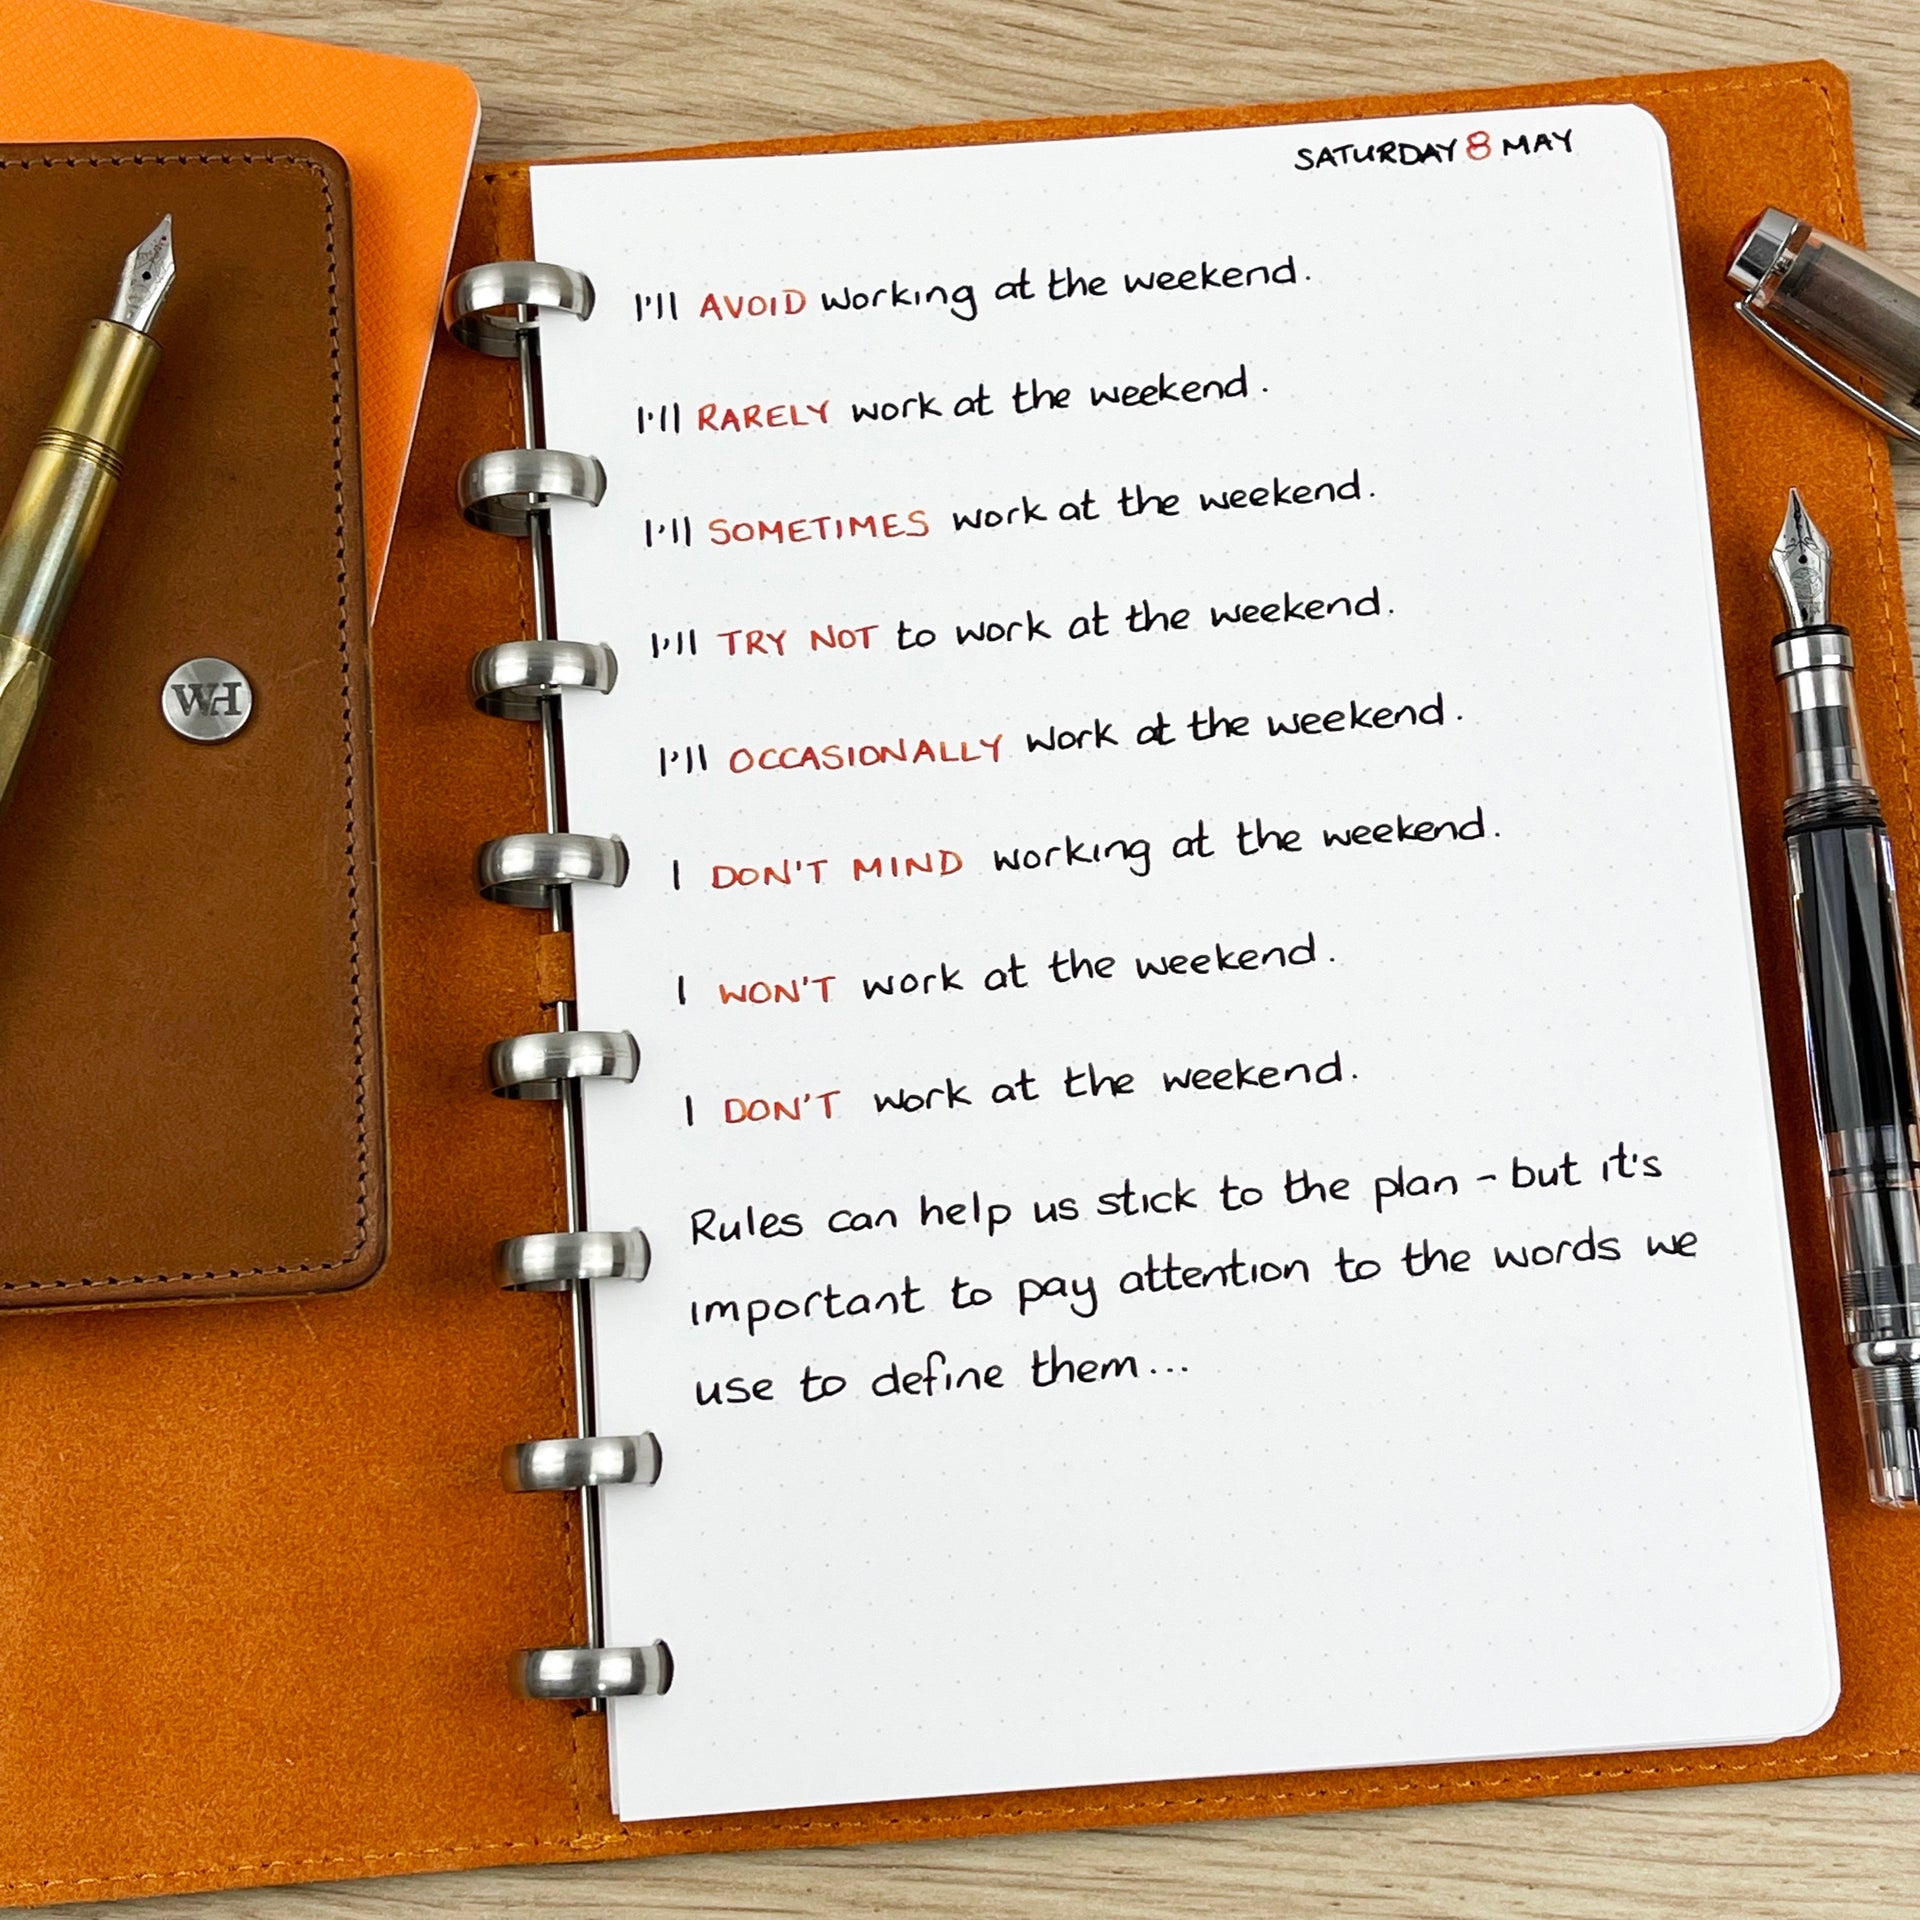 SATURDAY 8 MAY
I'll AVOID working at the weekend.
I'll RARELY work at the weekend.
I'll SOMETIMES work at the weekend.
I'll TRY NOT to work at the weekend.
I'll OCCASIONALLY work at the weekend.
I DON'T MIND working at the weekend.
I WON'T work at the weekend.
I DON'T work at the weekend.
Rules can help us stick to the plan - but it's
important to pay attention to the words we
use to define them...
WH